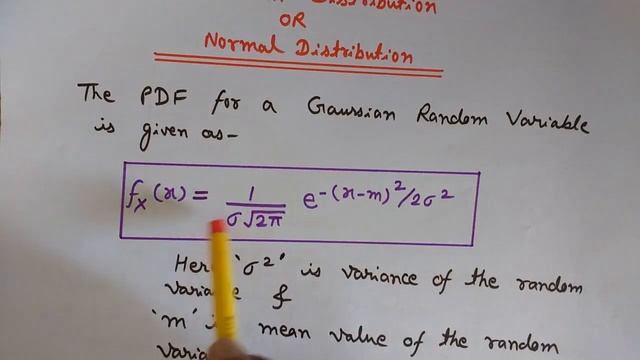 Distribution
OR
Normal Distribution
The PDF for a Gaussian Random Variable
is given as-
fX(x) = 1/σ√2π e-(x-m)²/2σ²
'σ²' is variance of the random
&
'm' mean value of the random